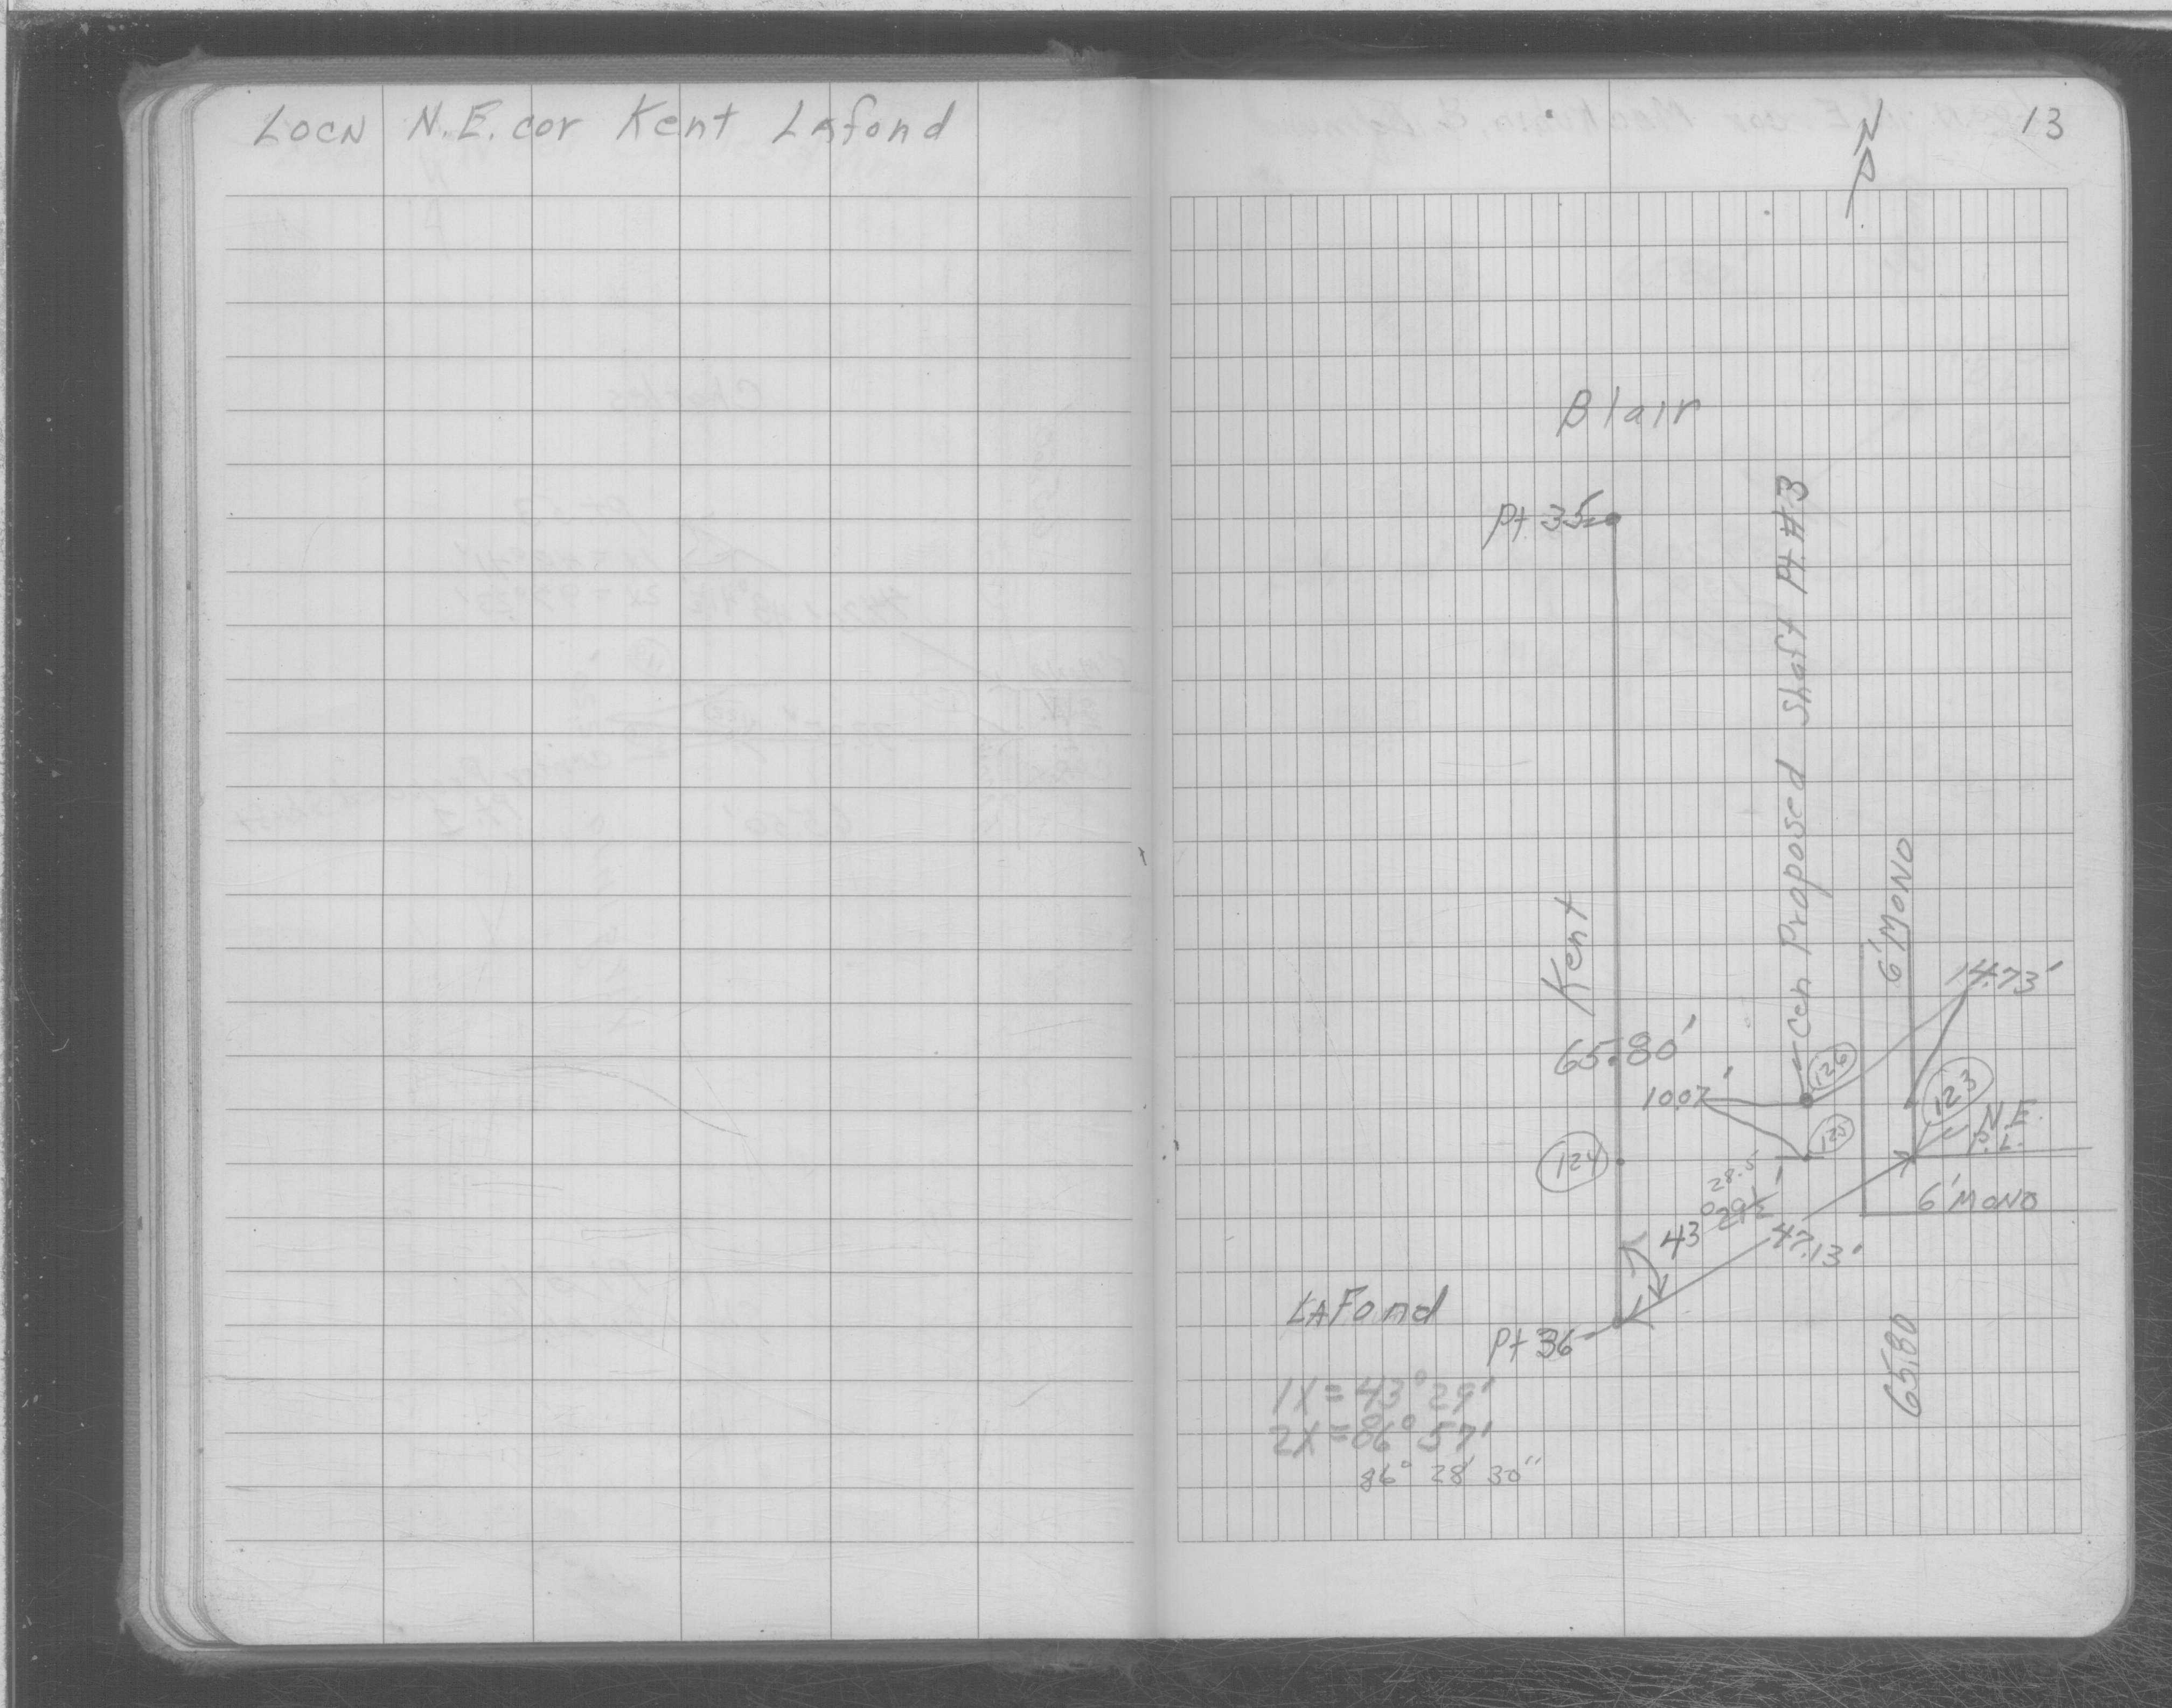 Locn N.E. cor Kent Lafond
N
13
Blair
Pt 35
Cen Proposed Shaft Pt #3
Kent
6' MONO
14.73'
65.80'
126
10.07'
123
N.E.
P.L.
125
124
28.5
43° 29½'
6' MONO
47.13'
LAFond
Pt 36
65.80
1X = 43° 29'
2X = 86° 57'
86° 28' 30"